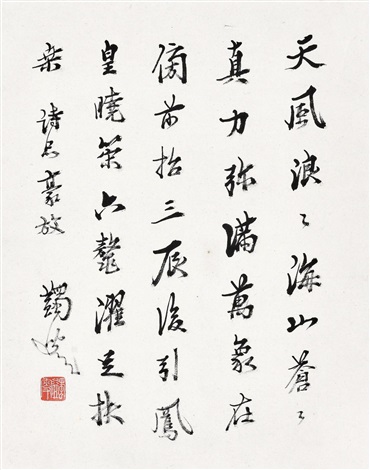 天風浪〻海山蒼〻
真力弥滿萬象在
傍前招三辰後引鳳
皇曉策六鼇濯足扶
桒 詩品豪放 蠲